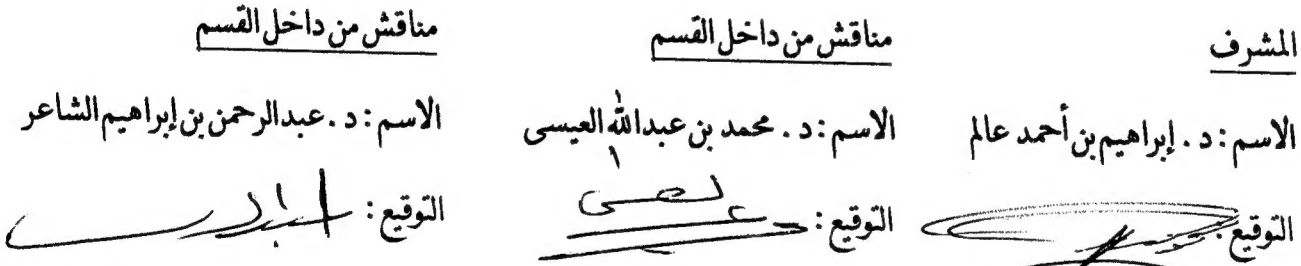 المشرف
الاسم : د . إبراهيم بن أحمد عالم
التوقيع :
مناقش من داخل القسم
الاسم : د . محمد بن عبدالله العيسى
التوقيع :
مناقش من داخل القسم
الاسم : د . عبدالرحمن بن إبراهيم الشاعر
التوقيع :